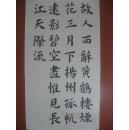 故人西辭黃鶴樓煙
花三月下揚州孤帆
遠影碧空盡惟見長
江天際流